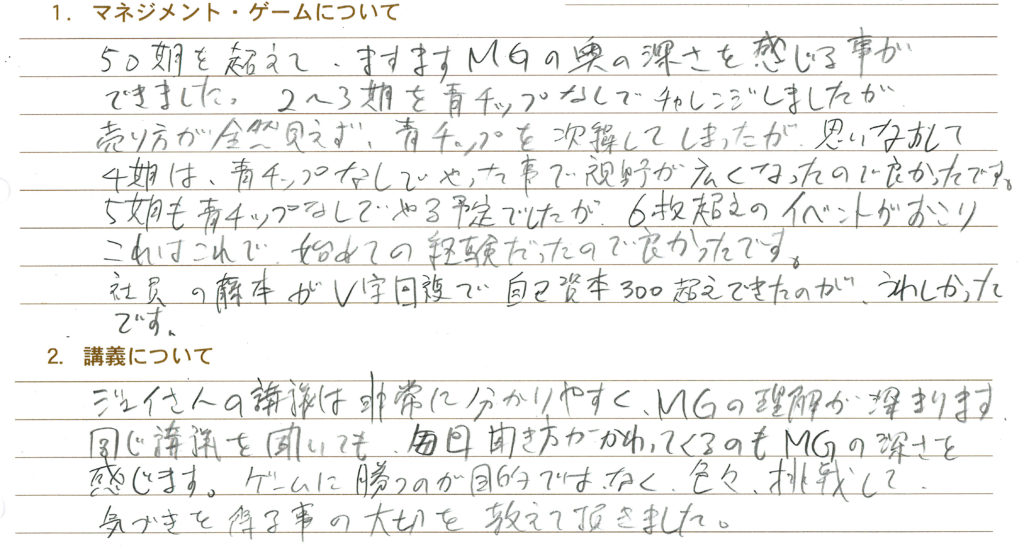 1. マネジメント・ゲームについて
50期を超えて、ますますMGの奥の深さを感じる事が
できました。2～3期を青チップなしでチャレンジしましたが
売り方が全然見えず、青チップを次繰してしまったが、思いなおして
4期は、青チップなしでやった事で視野が広くなったので良かったです。
5期も青チップなしでやる予定でしたが、6枚超えのイベントがおこり
これはこれで、始めての経験だったので良かったです。
社員の藤本がV字回復で自己資本300超えできたのが、うれしかった
です。
2. 講義について
ジェイさんの講議は非常に分かりやすく、MGの理解が深まります。
同じ講議を聞いても、毎回聞き方がかわってくるのもMGの深さを
感じます。ゲームに勝つのが目的ではなく、色々、挑戦して、
気づきを得る事の大切を教えて頂きました。